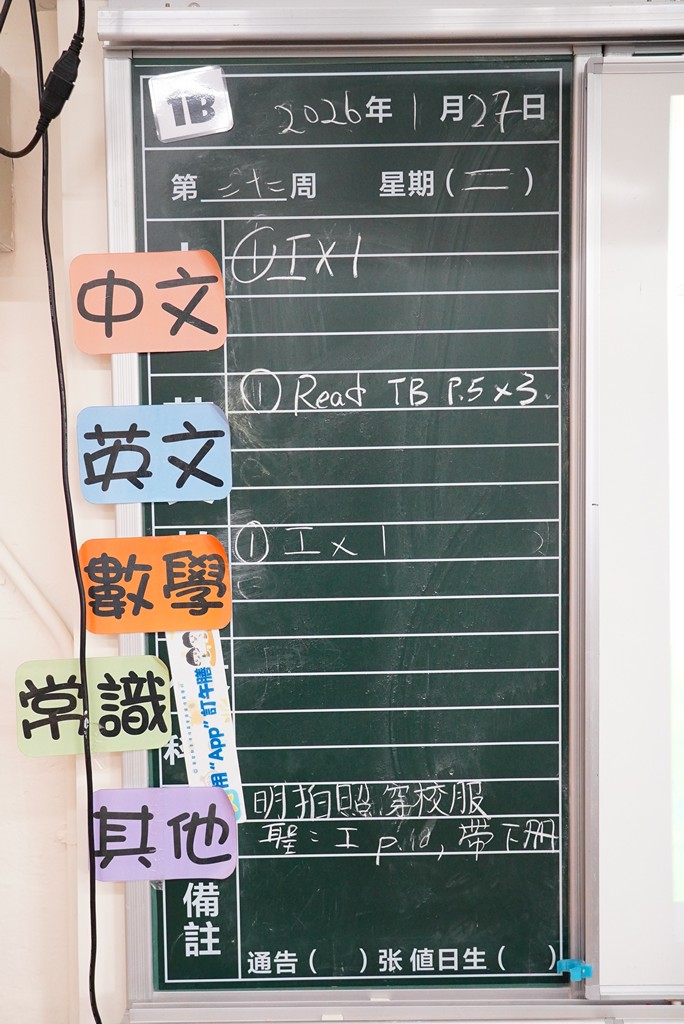 1B
2026年1月27日
第二十二周 星期(二)
中文
①工×1
英文
① Read TB P.5×3.
數學
① 工×1
常識
科
用“App”訂午膳
其他
明拍照穿校服
聖：工 p.10, 帶下冊
備註
通告( )张 值日生( )